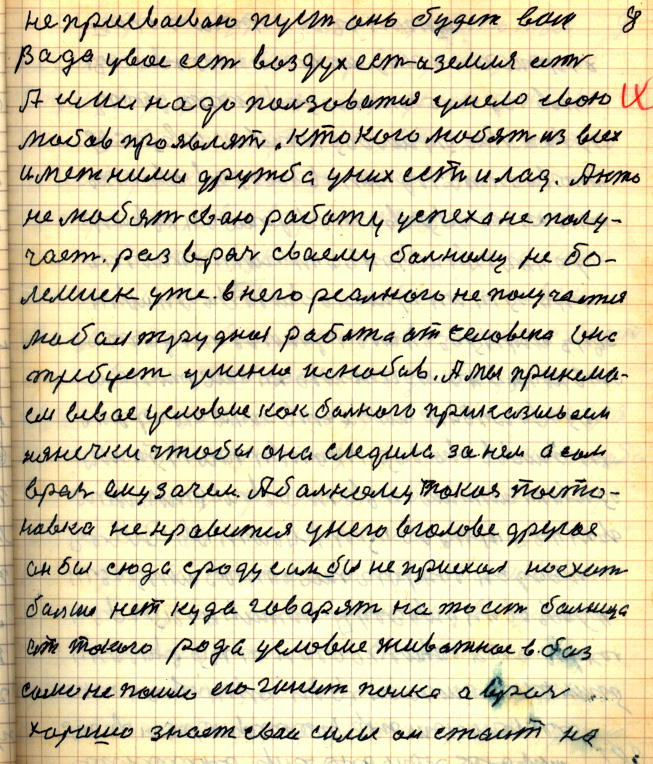 не присваеваю пуст онь будет ваш 8
Вада увас ест воздух ест а земля ест
А ими надо ползоватся умело свою IX
любов проявлят, кто кого любят из всех
имет ними дружба уних ест и лад. А кто
не любят сваю работу успеха не полу-
чает. раз врач сваему балному не бо-
леник уже. внего реалного не получается
любая трудная работа от человека она
требует умение и снобов. А мы прикема-
ем всвае условие как балного приказиваем
нянечки чтобы она следила за нем а сам
врач ему зачем. А балному такая посто-
новка не нравится унего вголове другое
он бы сюда сроду сам бы не приехал но ехат
болше нет куда говарят на то ест болница
от такого рода условие живатное в. баз
само не пошло его гонит полка а врач
хорошо знает сваи силы он стоит на